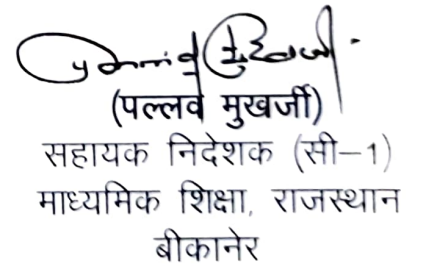 (पल्लव मुखर्जी)
सहायक निदेशक (सी–1)
माध्यमिक शिक्षा, राजस्थान
बीकानेर